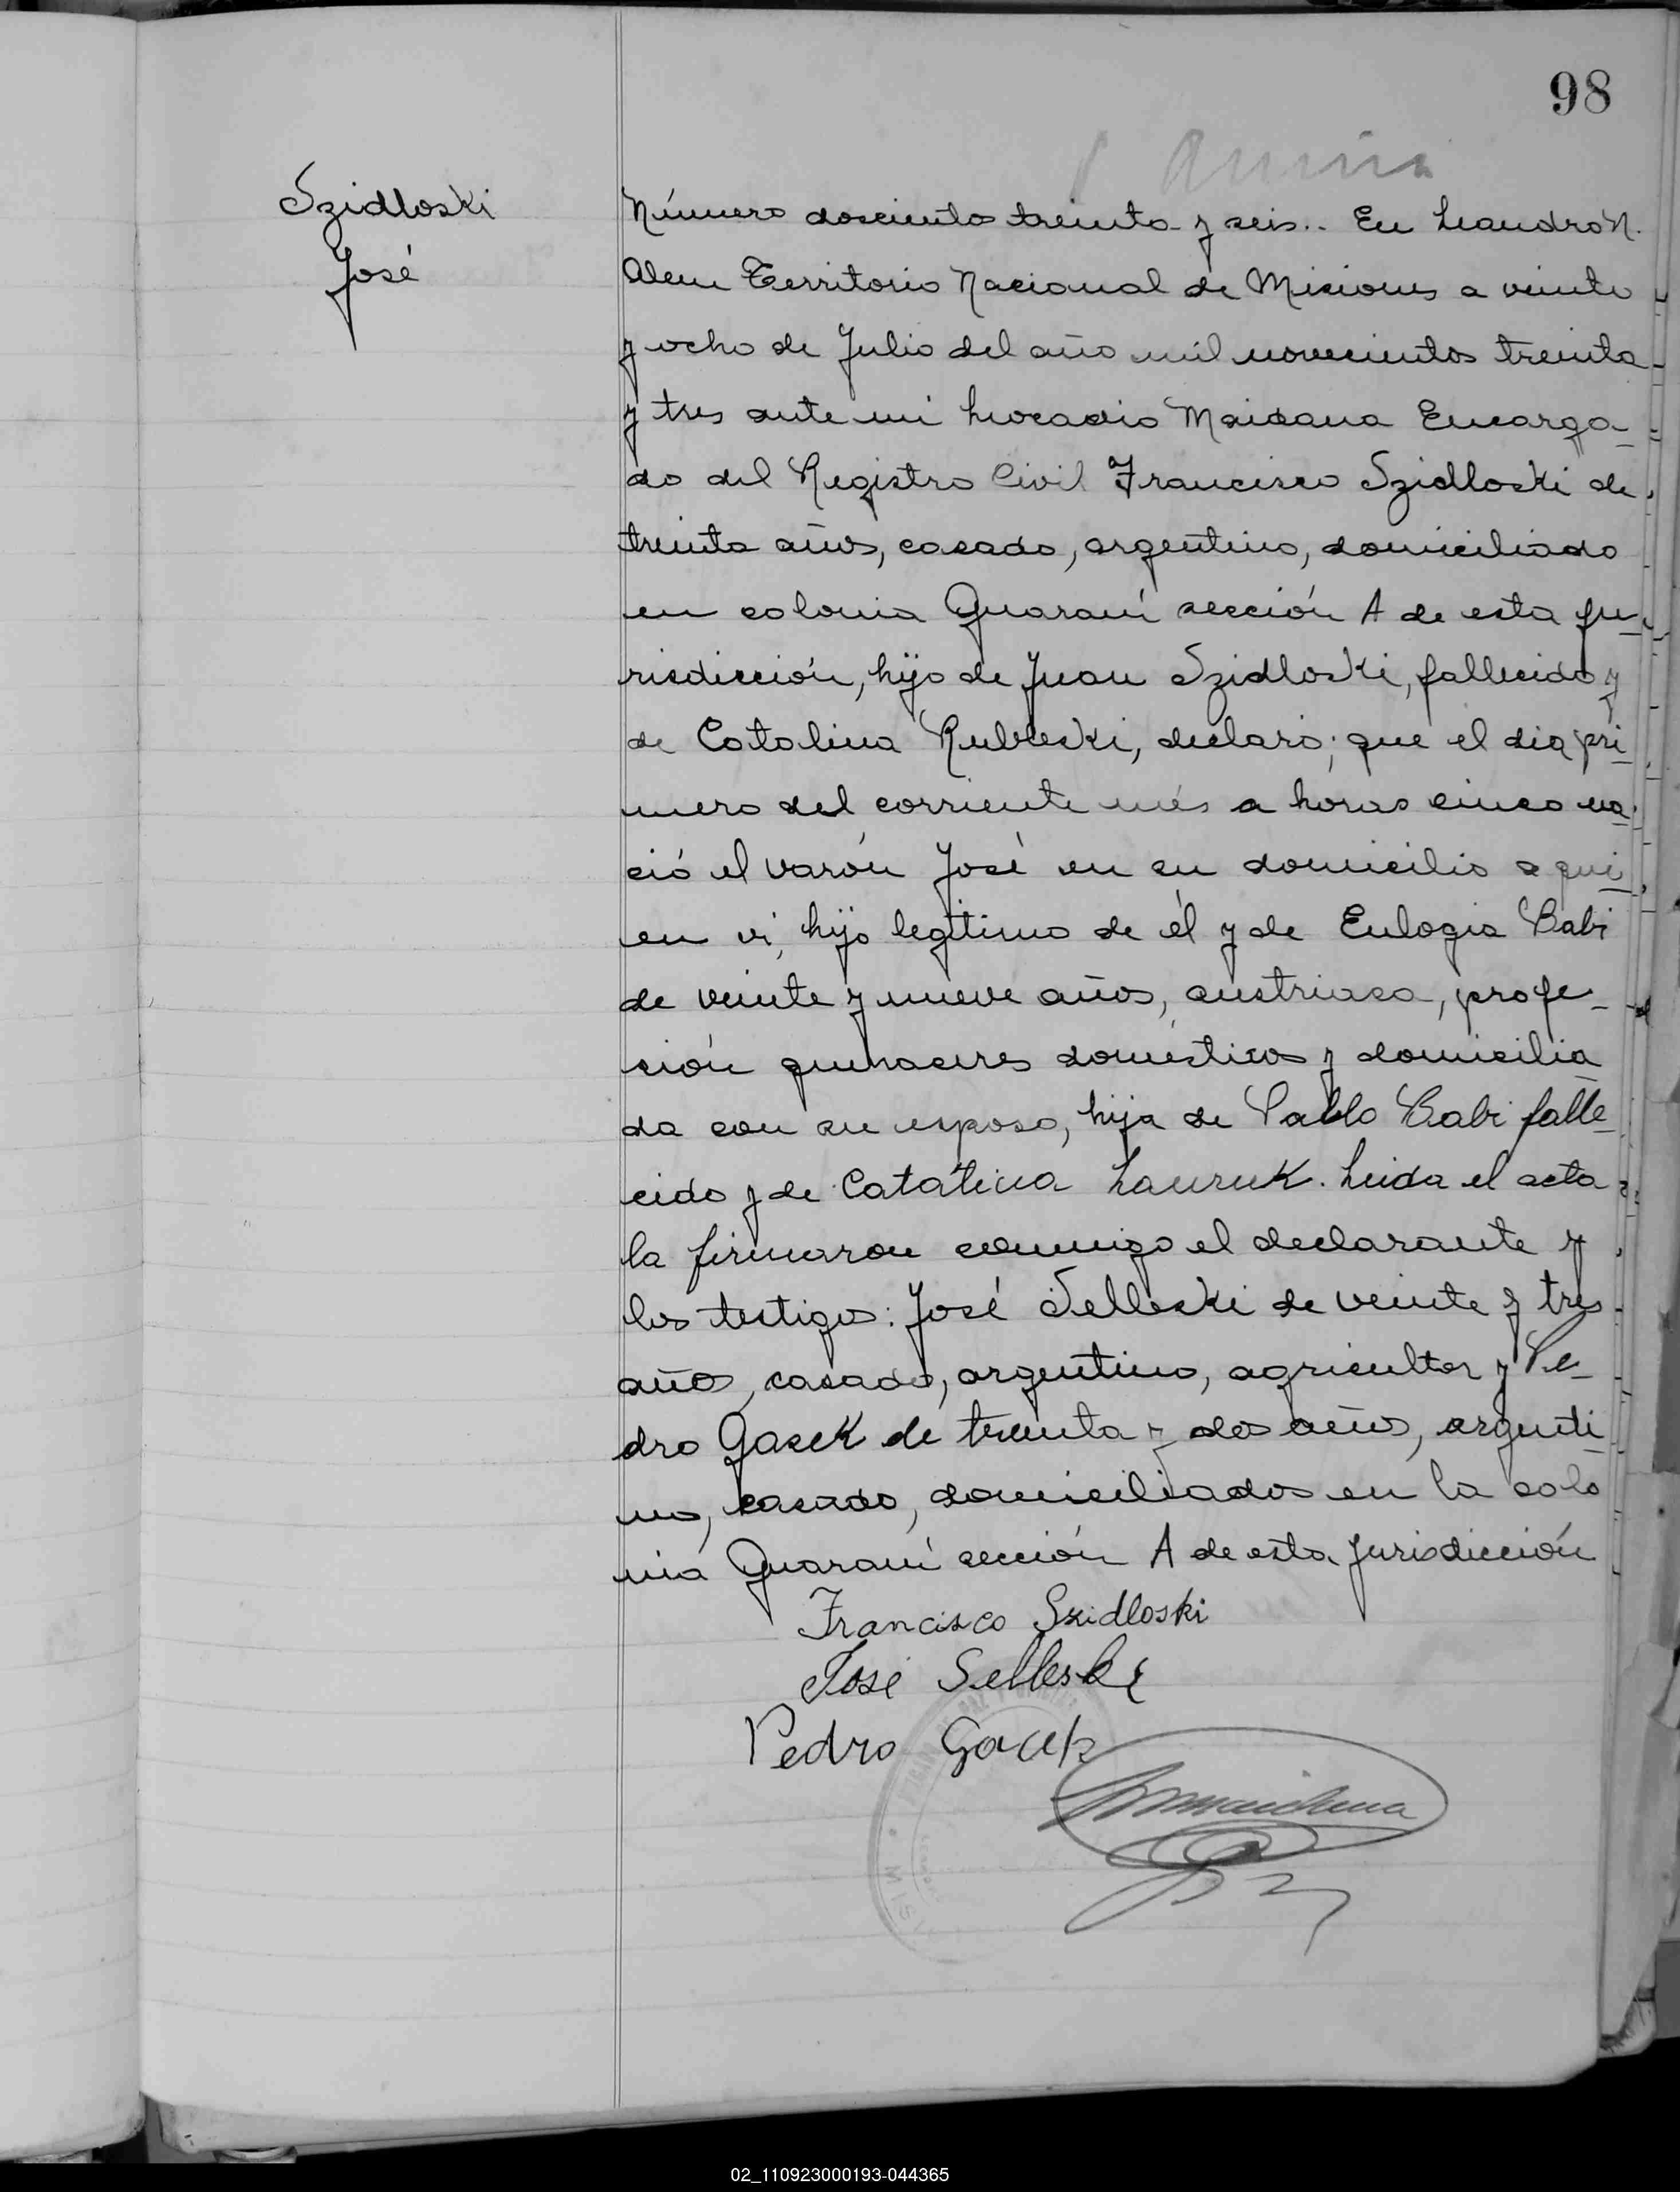 98
Szidloski
José
Número doscientos treinta y seis.. En Leandro N.
Alem Territorio Nacional de Misiones a veinte
y ocho de Julio del año mil novecientos treinta
y tres ante mi Leocadio Maidana Encarga-
do del Registro Civil Francisco Szidloski de
treinta años, casado, argentino, domiciliado
en colonia Guaraní sección A de esta ju-
risdicción, hijo de Juan Szidloski, fallecido y
de Catalina Rubleski, declaró; que el dia pri
mero del corriente més a horas cinco na
ció el varón José en su domicilio a qui
en vi, hijo legítimo de él y de Eulogia Babi
de veinte y nueve años, austriaca, profe-
sión quehaceres domésticos y domicilia
da con su esposo, hija de Pablo Babi falle
cido y de Catalina Lauruk. Leida el acta
la firmaron conmigo el declarante y
los testigos: José Selleski de veinte y tres
años, casado, argentino, agricultor y Pe-
dro Gasek de treinta y dos años, argenti
no, casado, domiciliados en la colo
nia Guaraní sección A de esta Jurisdicción
Francisco Szidloski
José Selleski
Pedro Gacek
02_110923000193-044365